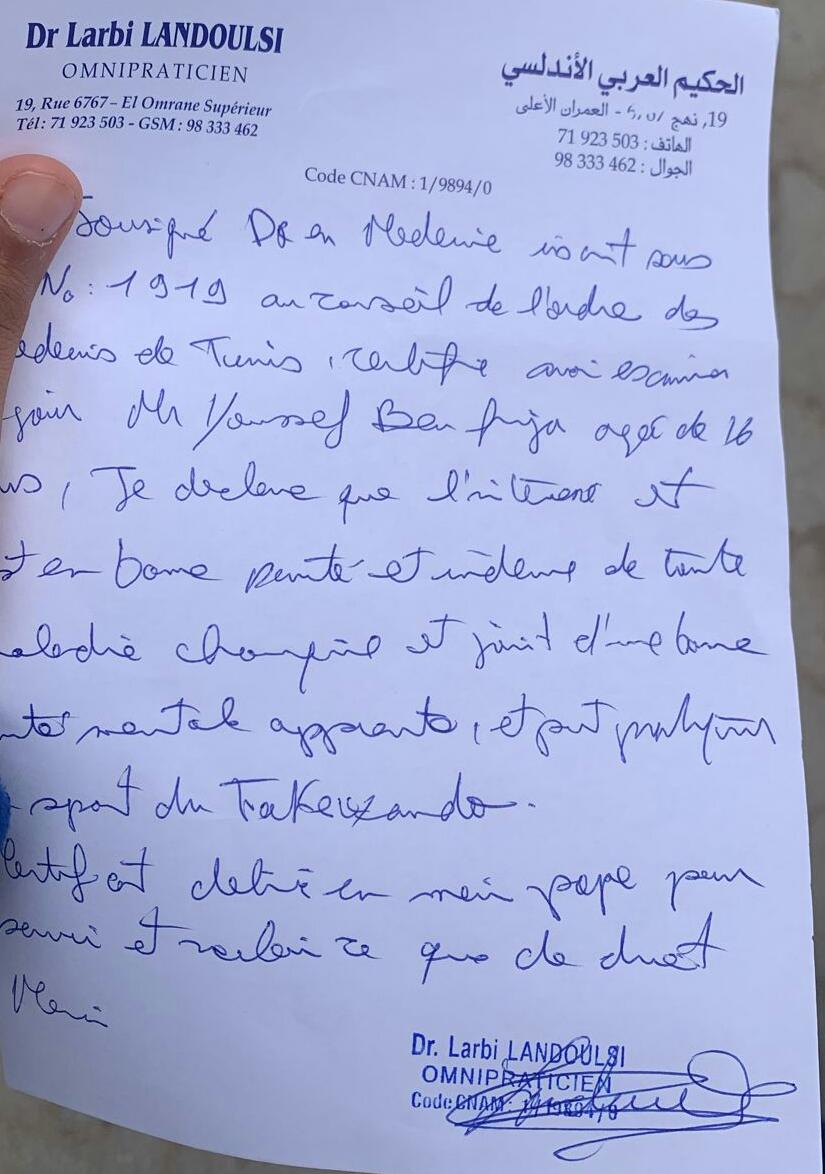 Dr Larbi LANDOULSI
OMNIPRATICIEN
19, Rue 6767 – El Omrane Supérieur
Tél: 71 923 503 - GSM : 98 333 462
الحكيم العربي الأندلسي
19, نهج - العمران الأعلى
الهاتف : 503 923 71
الجوال : 462 333 98
Code CNAM : 1/9894/0
Sousigné DR en Medecine inscrit sous
No : 1919 au conseil de l'ordre des
edecins de Tunis, certifie avoir examiner
Mr Youssef Ben agé de 16
ns, Je declare que l'interessé est
st en bonne santé et indemne de toute
aladie et jouit d'une bonne
nté mentale apparente, et peut pratiquer
sport du Takewando.
Certificat delivré en main propre pour
servir et valoir ce que de droit
Merci
Dr. Larbi LANDOULSI
OMNIPRATICIEN
Code CNAM : 1/19894/0